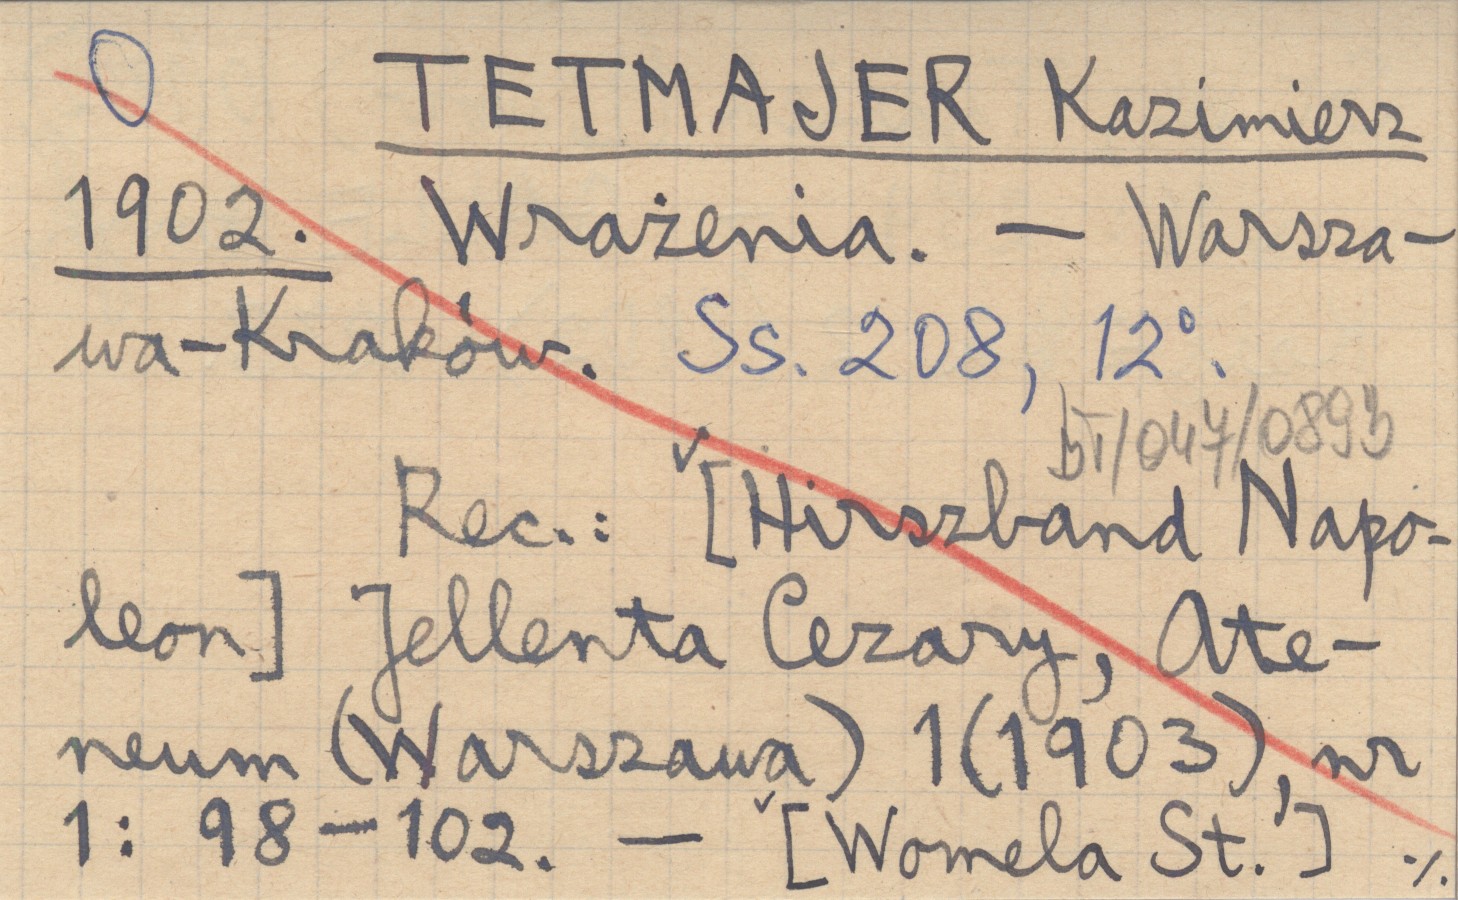 TETMAJER Kazimierz
1902. Wrażenia. — Warsza-
wa-Kraków. Ss. 208, 12°.
Rec.: [Hirszband Napo-
leon] Jellenta Cezary, Ate-
neum (Warszawa) 1(1903), nr
1: 98-102. — [Womela St.] ./.